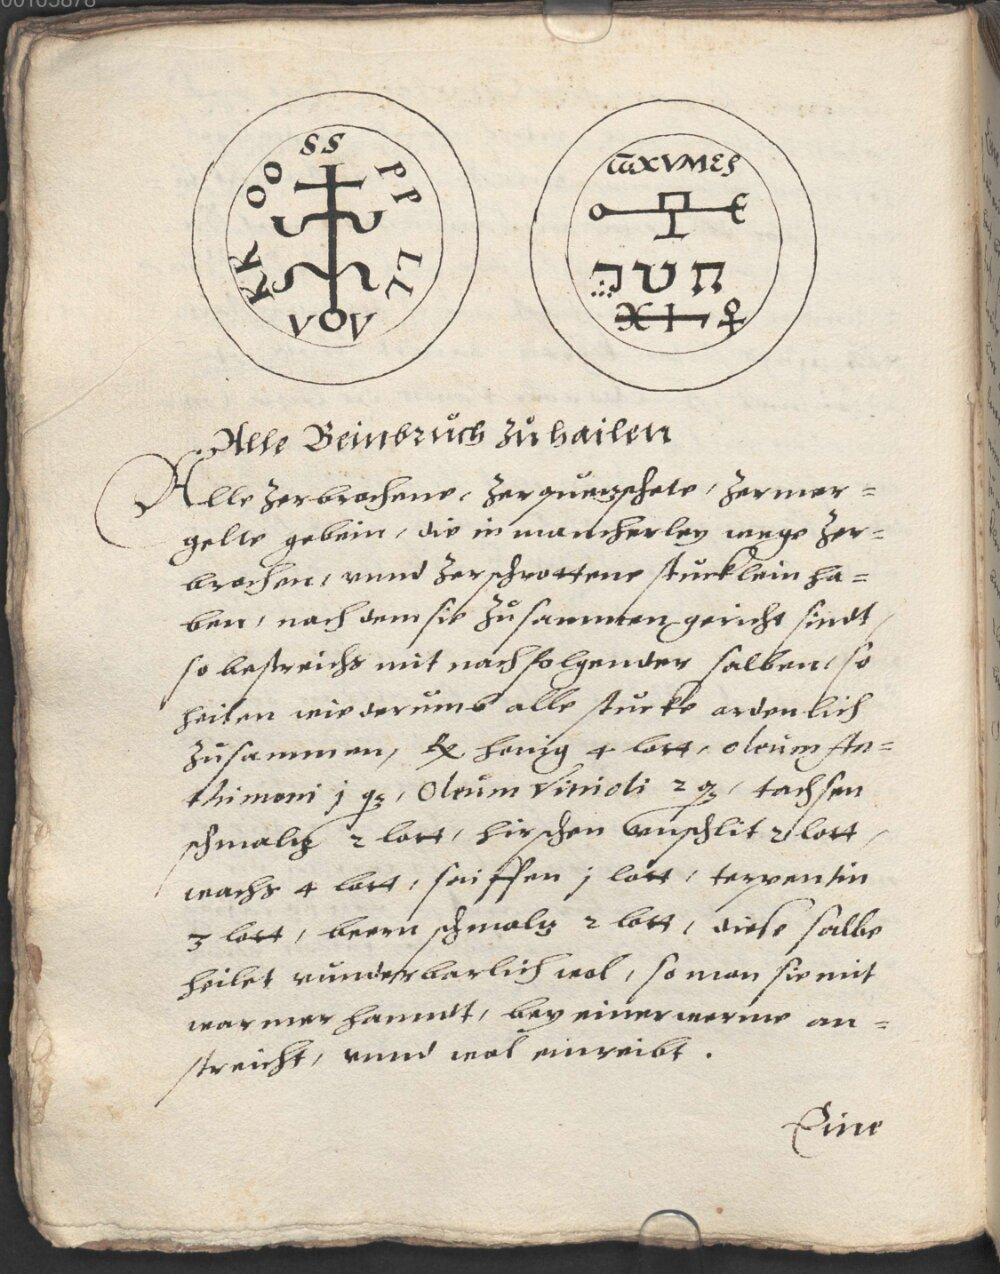 00105878
SS
PP
LL
VOV
RR
OO
ωXVMES
Alle Beinbrůch Zůhailen
Alle Zerbrochene, Zerquetzschete, Zermer=
gelte gebein, die in mancherley wege Zer=
brochen, vnnd Zerschrottene stucklein ha=
ben, nach dem sie Zůsammen gericht sindt,
so bestreichs mit nachfolgender salben, so
heilen wiederůmb alle stucke ordenlich
Zůsammen, ℞ honig 4 lott, oleum An=
thimoni j qz, Oleum Vitrioli 2 qz, tachsen
schmaltz 2 lott, hirschen Vnschlit 2 lott,
wachs 4 lott, seiffen j lott, terpentin
3 lott, beern schmaltz 2 lott, diese salbe
heilet wůnderbarlich wol, so man sie mit
warmer hanndt, bey einer werme an=
streicht, vnnd wol einreibt.
Eine